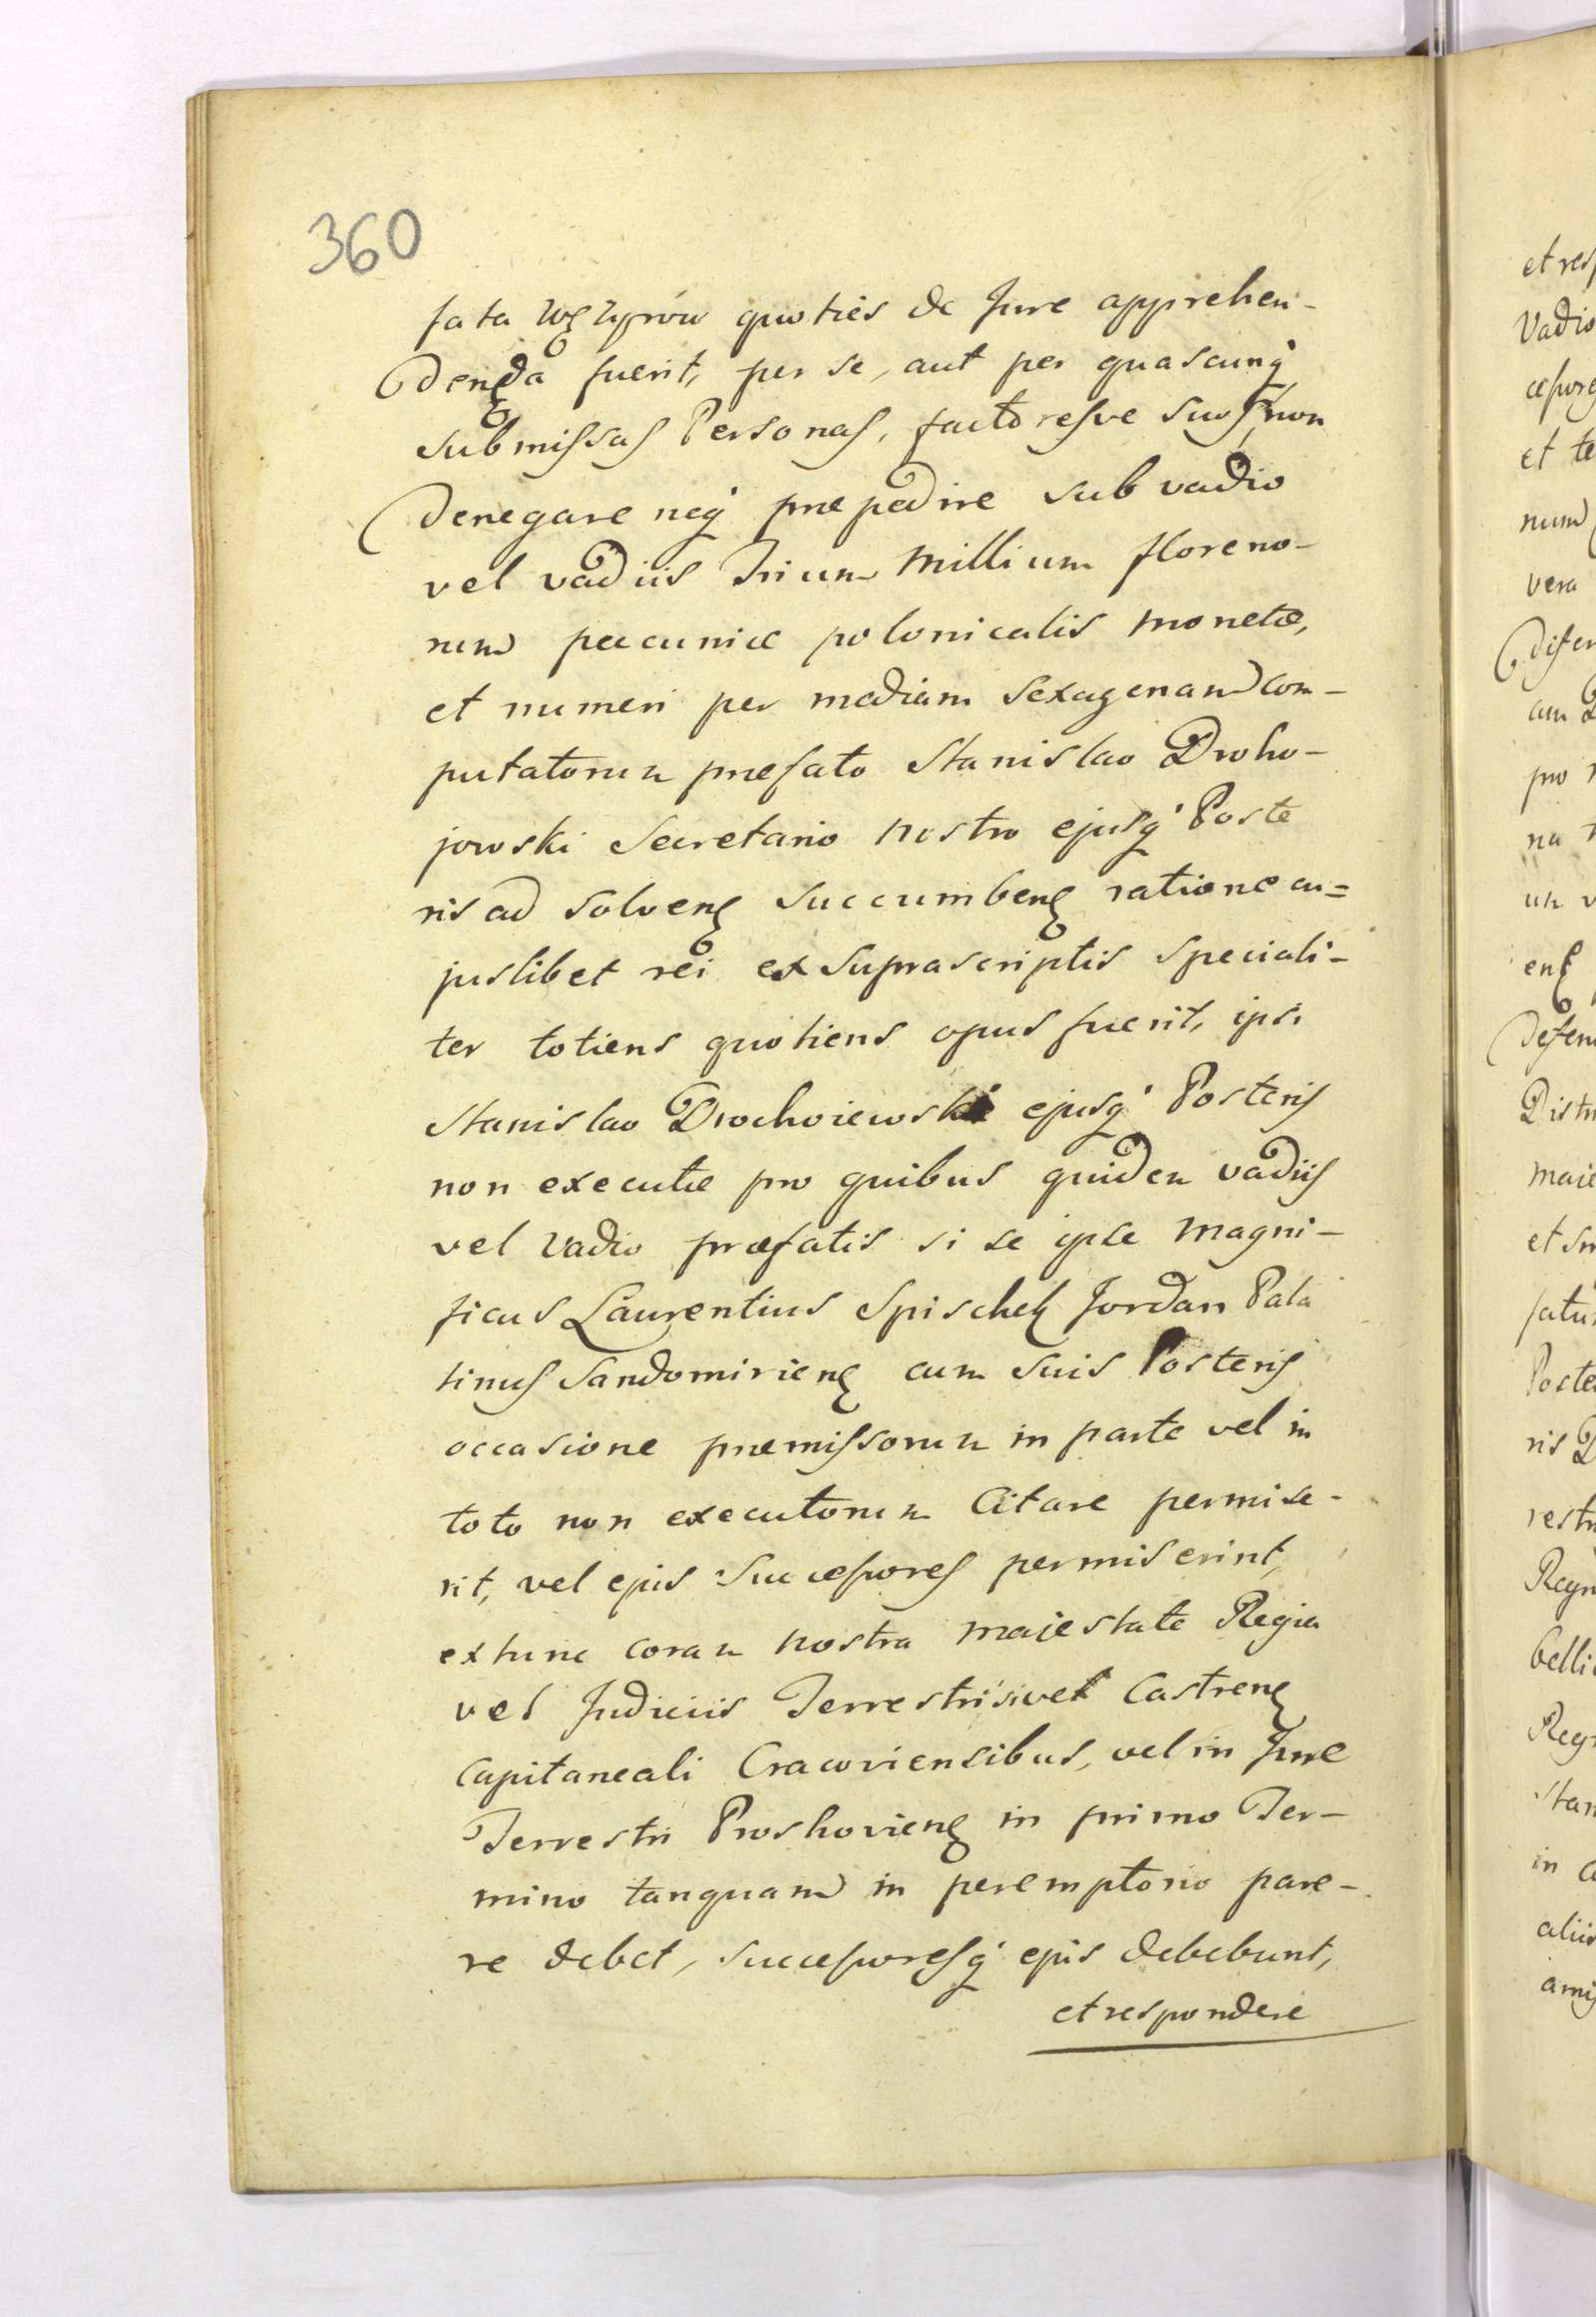 360
fata Węzÿrow quoties de Jure apprehen-
denda fuerit, per se, aut per quascunq́
submissas Personas, factoresve suos, non
denegare neq́ præpedire sub vadio
vel vadiis Trium Millium floreno-
rum pecuniæ polonicalis monetæ,
et numeri per mediam sexagenam com-
putatorum præfato Stanislao Droho-
jowski Secretario nostro ejusq́ Poste
ris ad solvenꝫ succumbenꝫ ratione cu=
juslibet rei ex suprascriptis speciali-
ter totiens quotiens opus fuerit, ipsi
Stanislao Drochoiewski ejusq́ Posteris
non executæ pro quibus quidem vadiis
vel vadio præfatis si se ipse Magni-
ficus Laurentius Spischek Jordan Pala
tinus Sandomirienꝫ cum suis Posteris
occasione præmissorum in parte vel in
toto non executorum Citare permise-
rit, vel ejus successores permiserint,
extunc coram nostra majestate Regia
vel Judiciis Terrestrisivel Castrenꝫ
Capitaneali Cracoviensibus, vel in Jure
Terrestri Proshovienꝫ in primo Ter-
mino tanquam in peremptorio pare-
re debet, successoresq́ ejus debebunt,
et respondere
et res
Vadio
cessore
et te
num
vera
pro
na
enꝫ
Defen
Distr
maie
et
fatu
Poste
ris D
restr
Regn
belli
Reg
in
aliis